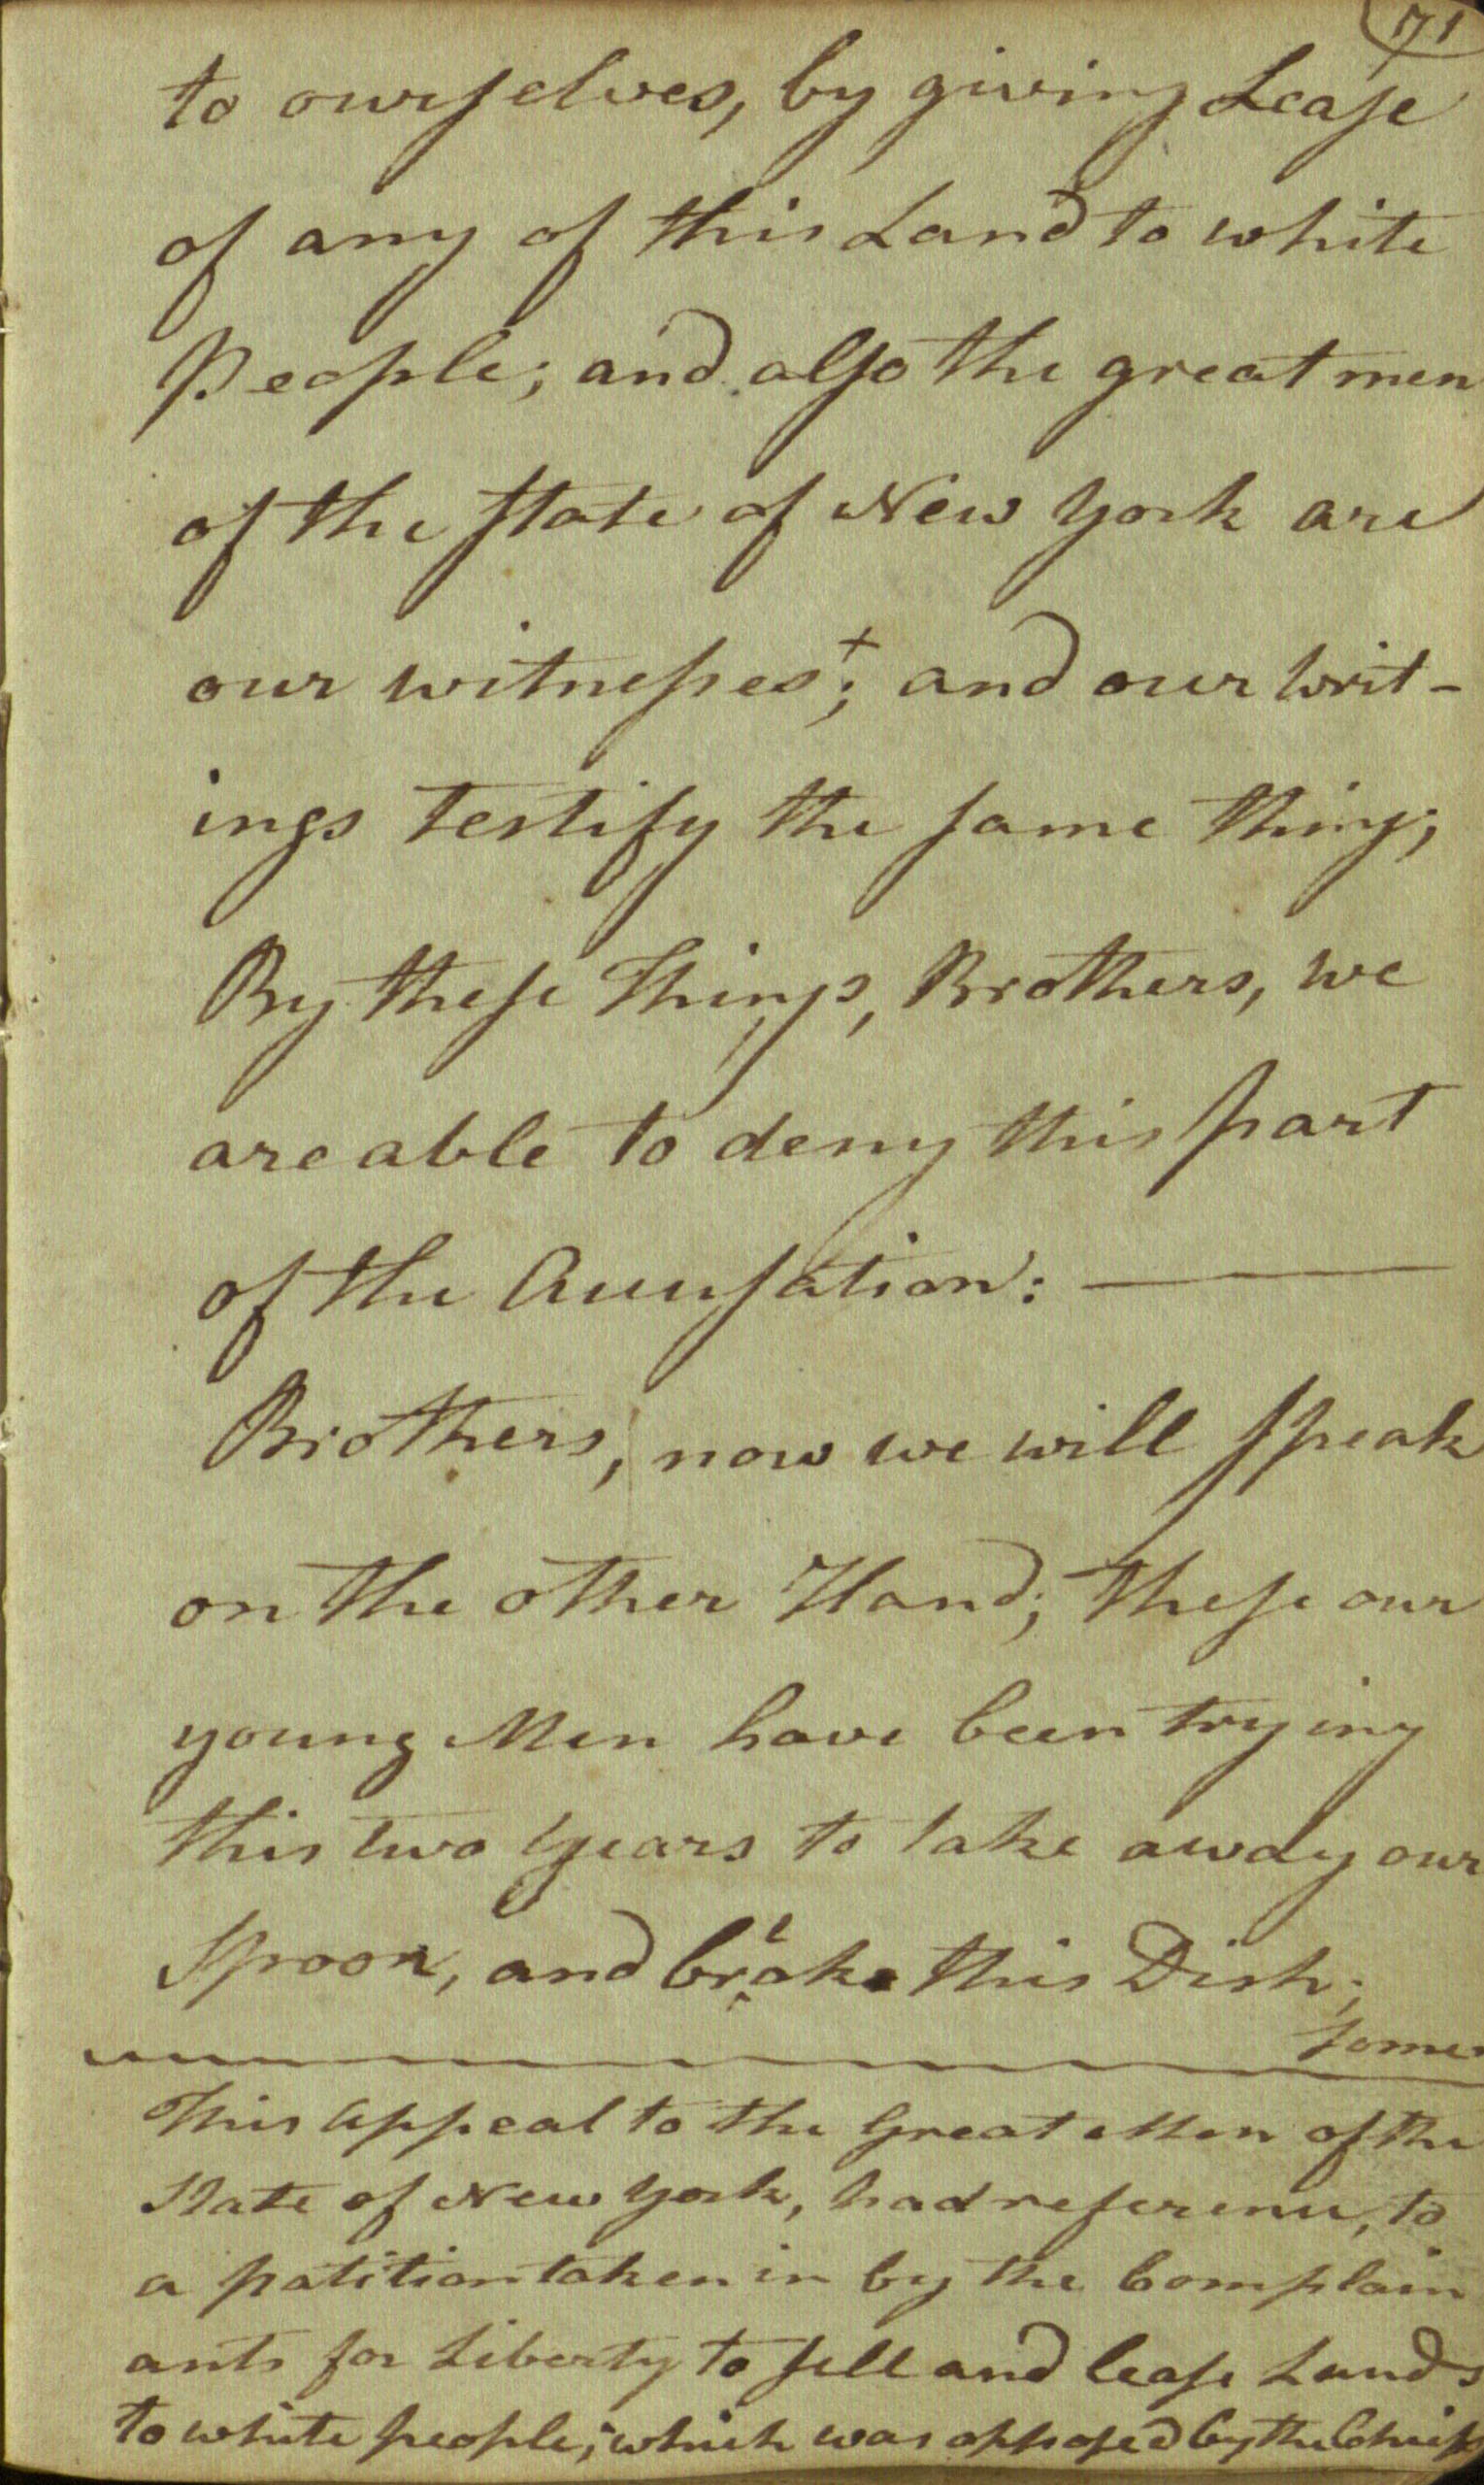 71
to ourselves, by giving Lease
of any of this Land to white
People; and also the great men
of the State of New York are
our witnesses+; and our writ-
ings testify the same thing;
By these Things, Brothers, we
are able to deny this part
of the Accusation: —
Brothers, now we will speak
on the other Hand; these our
young Men have been trying
this two years to take away our
Spoon, and break this Dish;
some
This appeal to the Great Men of the
State of New York, had reference, to
a patition taken in by the Complain
ants for Liberty to sell and lease Lands
to white people; which was opposed by the Chiefs